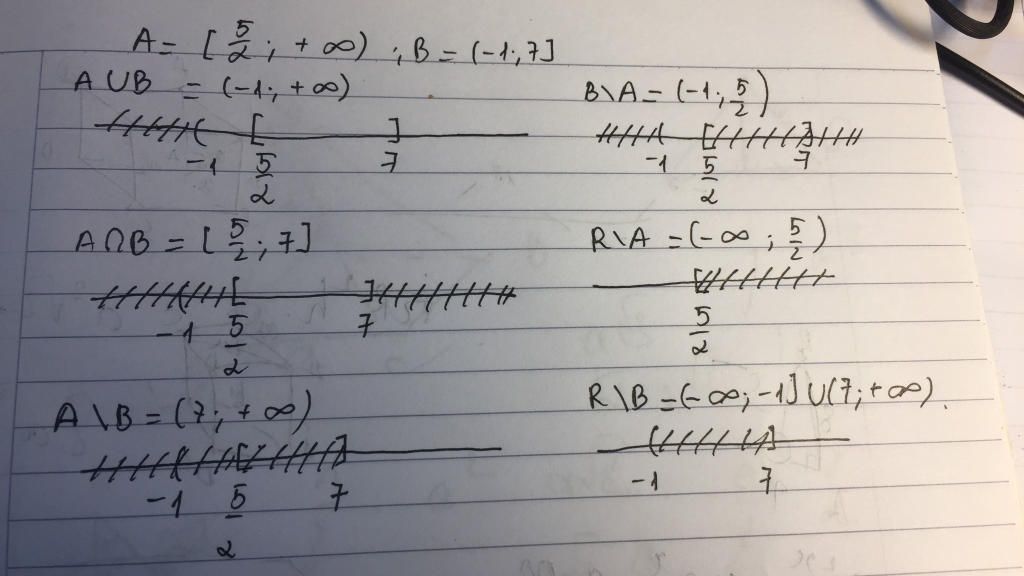 A = [5/2; +∞) ; B = (-1; 7]
A∪B = (-1; +∞)
-1 5/2 7
B\A = (-1; 5/2)
-1 5/2 7
A∩B = [5/2; 7]
-1 5/2 7
R\A = (-∞; 5/2)
5/2
A\B = (7; +∞)
-1 5/2 7
R\B = (-∞; -1] ∪ (7; +∞).
-1 7